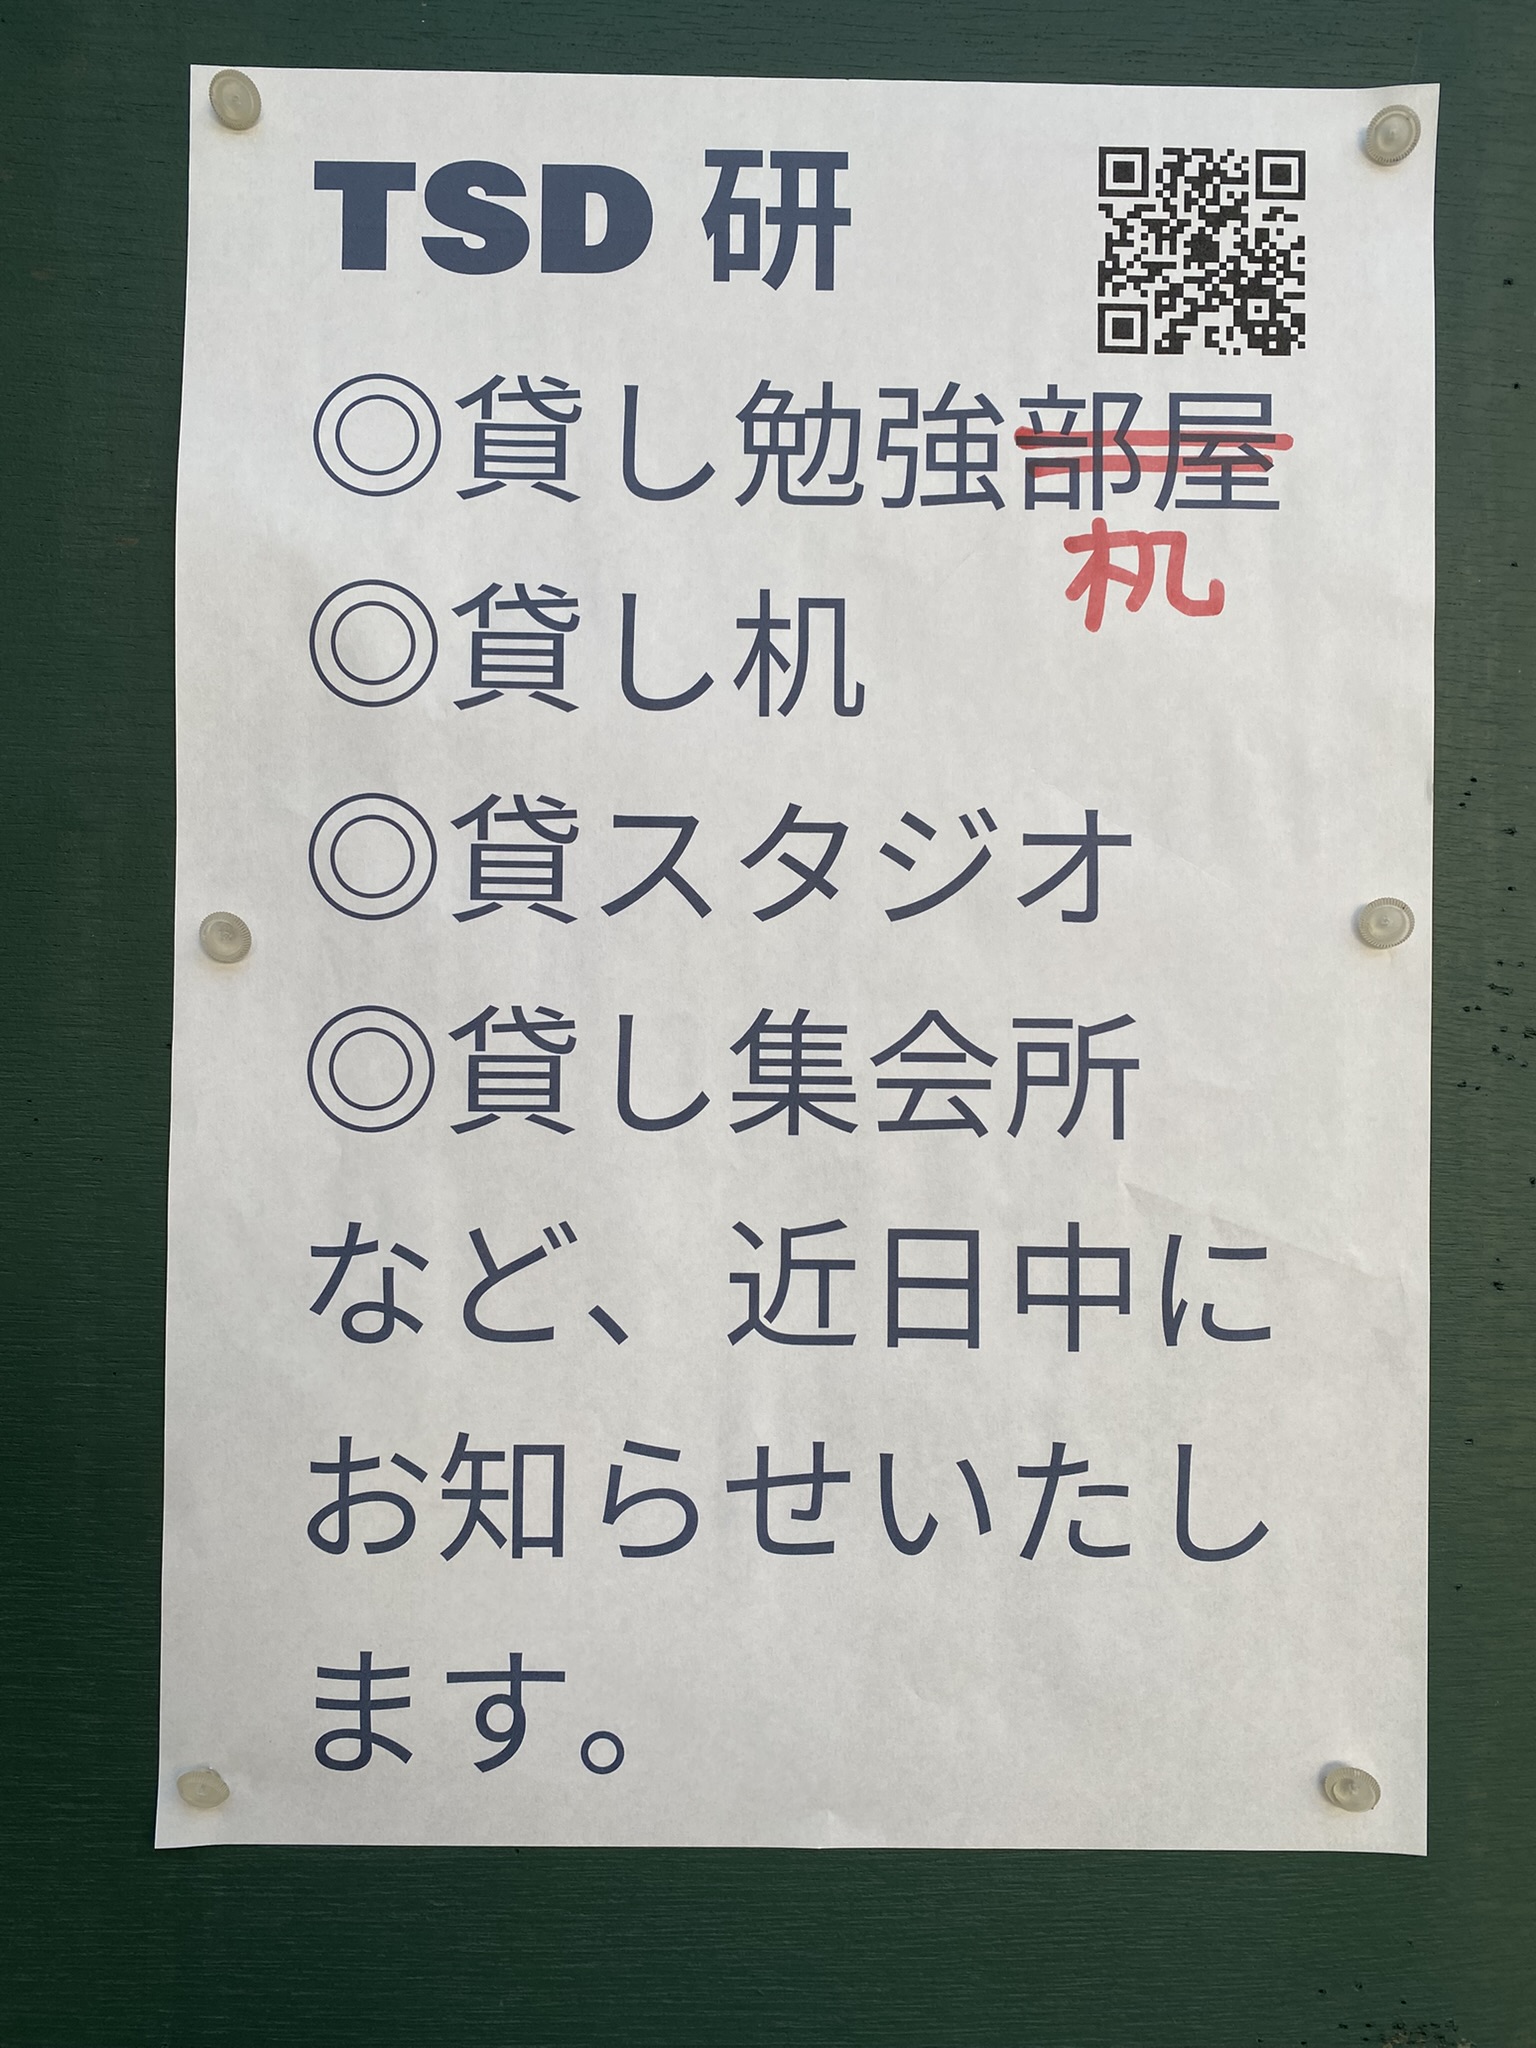 TSD 研
◎貸し勉強部屋
机
◎貸し机
◎貸スタジオ
◎貸し集会所
など、近日中に
お知らせいたし
ます。